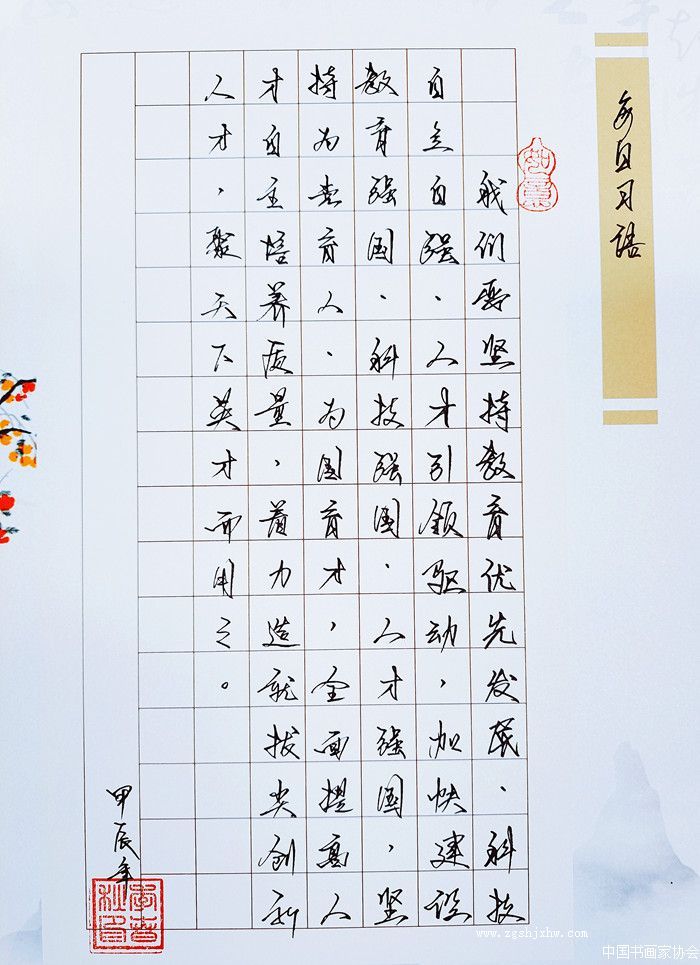 每日习语
我们要坚持教育优先发展、科技
自立自强、人才引领驱动，加快建设
教育强国、科技强国、人才强国，坚
持为党育人、为国育才，全面提高人
才自主培养质量，着力造就拔尖创新
人才，聚天下英才而用之。
甲辰年
www.zgshjxhw.com
中国书画家协会